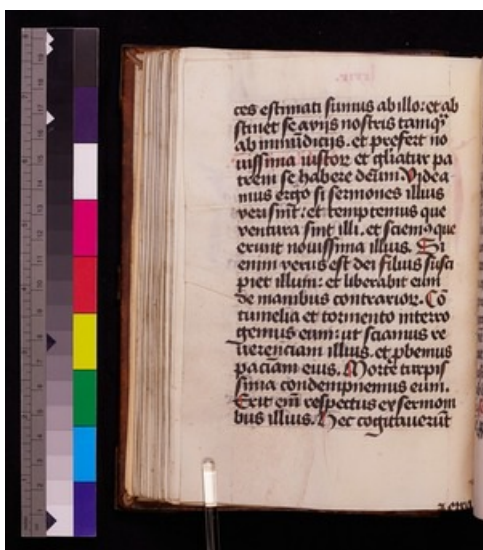 ces estimati sumus ab illo: et ab
stinet se a vijs nostris tamq̄
ab inmūdicijs. et prefert no
uissima iustoꝝ et gl̄iatur pa
trem se habere deum. Videa
mus ergo si sermones illius
veri sint: et temptemus que
ventura sint illi. et sciemꝰ que
erunt nouissima illius. Si
enim verus est dei filius susci
piet illum: et liberabit eum
de manibus contrarioꝝ. Cō
tumelia et tormento interro
gemus eum: ut sciamus re
verenciam illius. et ꝓbemus
paciam eius. Morte turpis
sima condempnemus eum.
Erit em̄ respectus ex sermoni
bus illius. Hec cogitauerūt